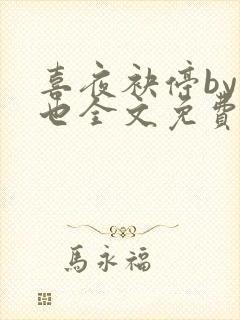 喜夜袂停by
也全文免費
馬永福